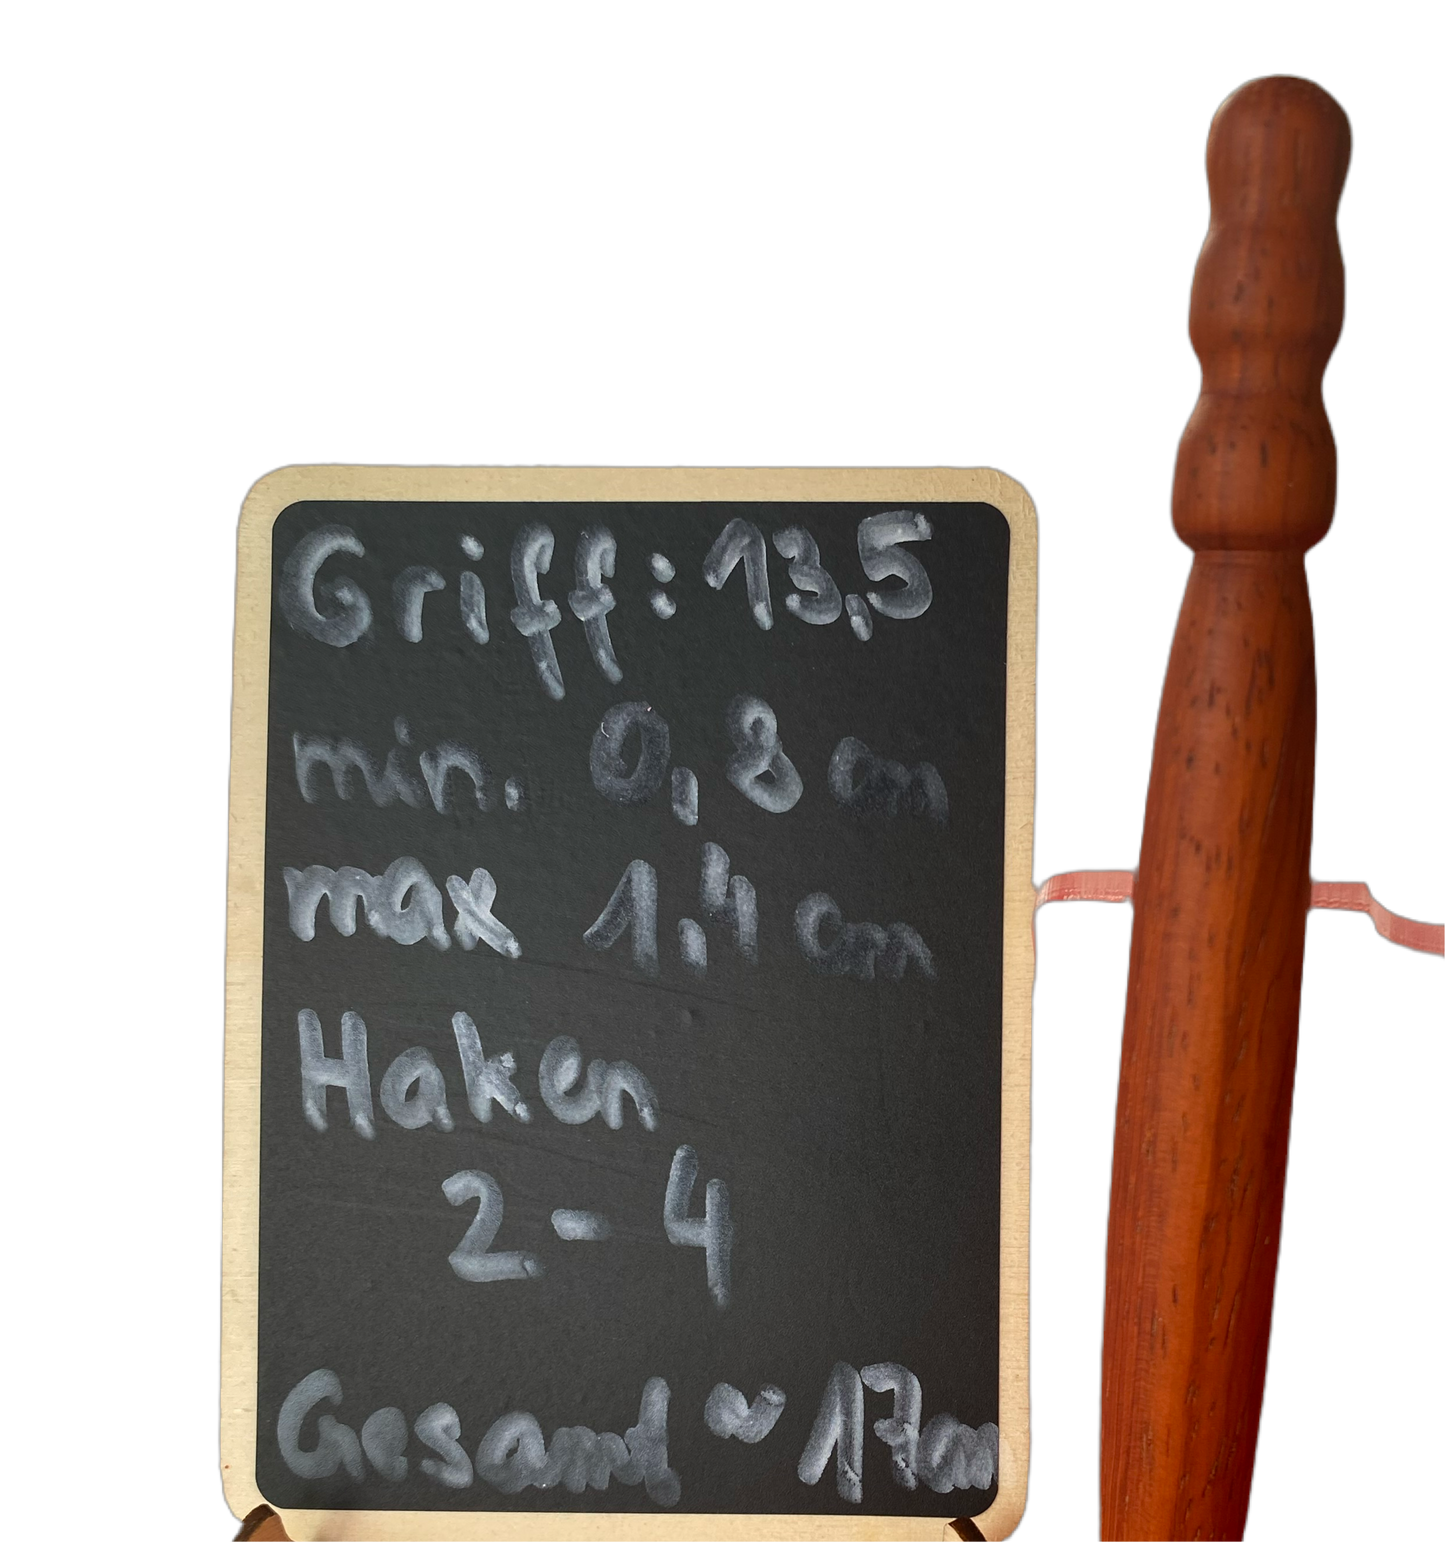 Griff: 13,5
min. 0,8 cm
max 1,4 cm
Haken
2 - 4
Gesamt ~ 17cm